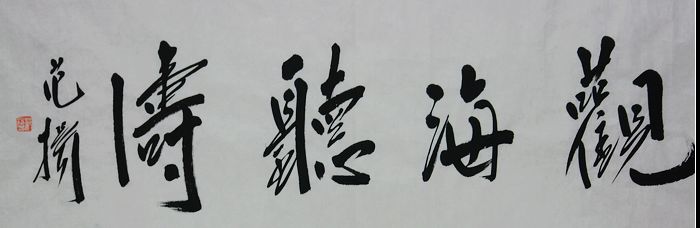 觀海聽濤
范撝